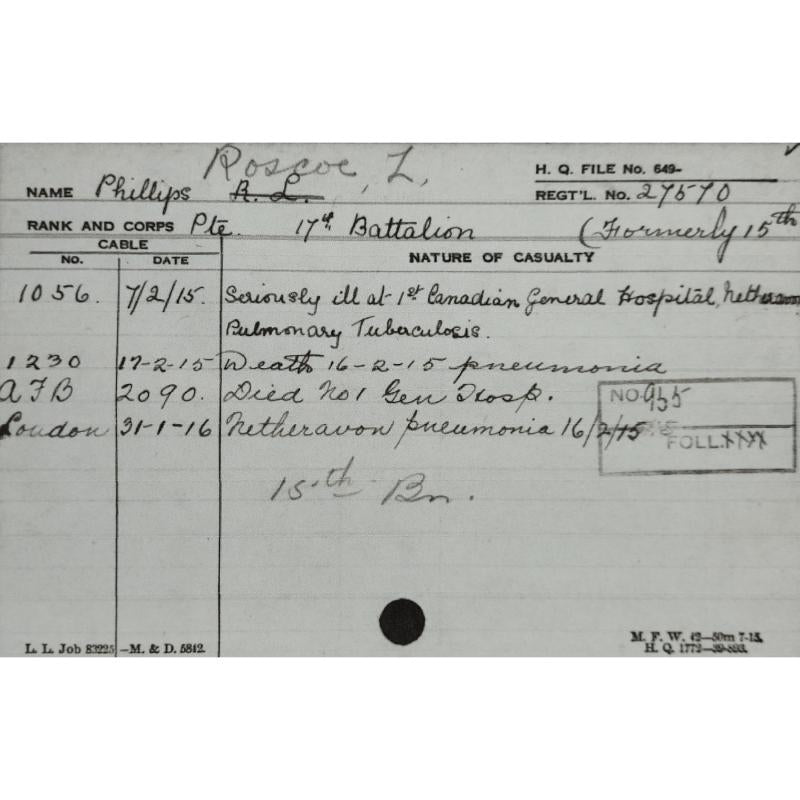 Roscoe, L.
H. Q. FILE No. 649-
NAME Phillips R. L. REGT'L. No. 27570
RANK AND CORPS Pte. 17th Battalion (Formerly 15th
CABLE
NO. DATE NATURE OF CASUALTY
1056. 7/2/15. Seriously ill at 1st Canadian General Hospital, Netheravon
Pulmonary Tuberculosis.
1230 17-2-15 Death 16-2-15 pneumonia
AFB 2090. Died No 1 Gen Hosp.
NO. 955
London 31-1-16 Netheravon pneumonia 16/2/15
FOLL. XXXX
15th Bn.
L. L. Job 83225 -M. & D. 5842.
M. F. W. 42-50m 7-15.
H. Q. 1772-39-893.